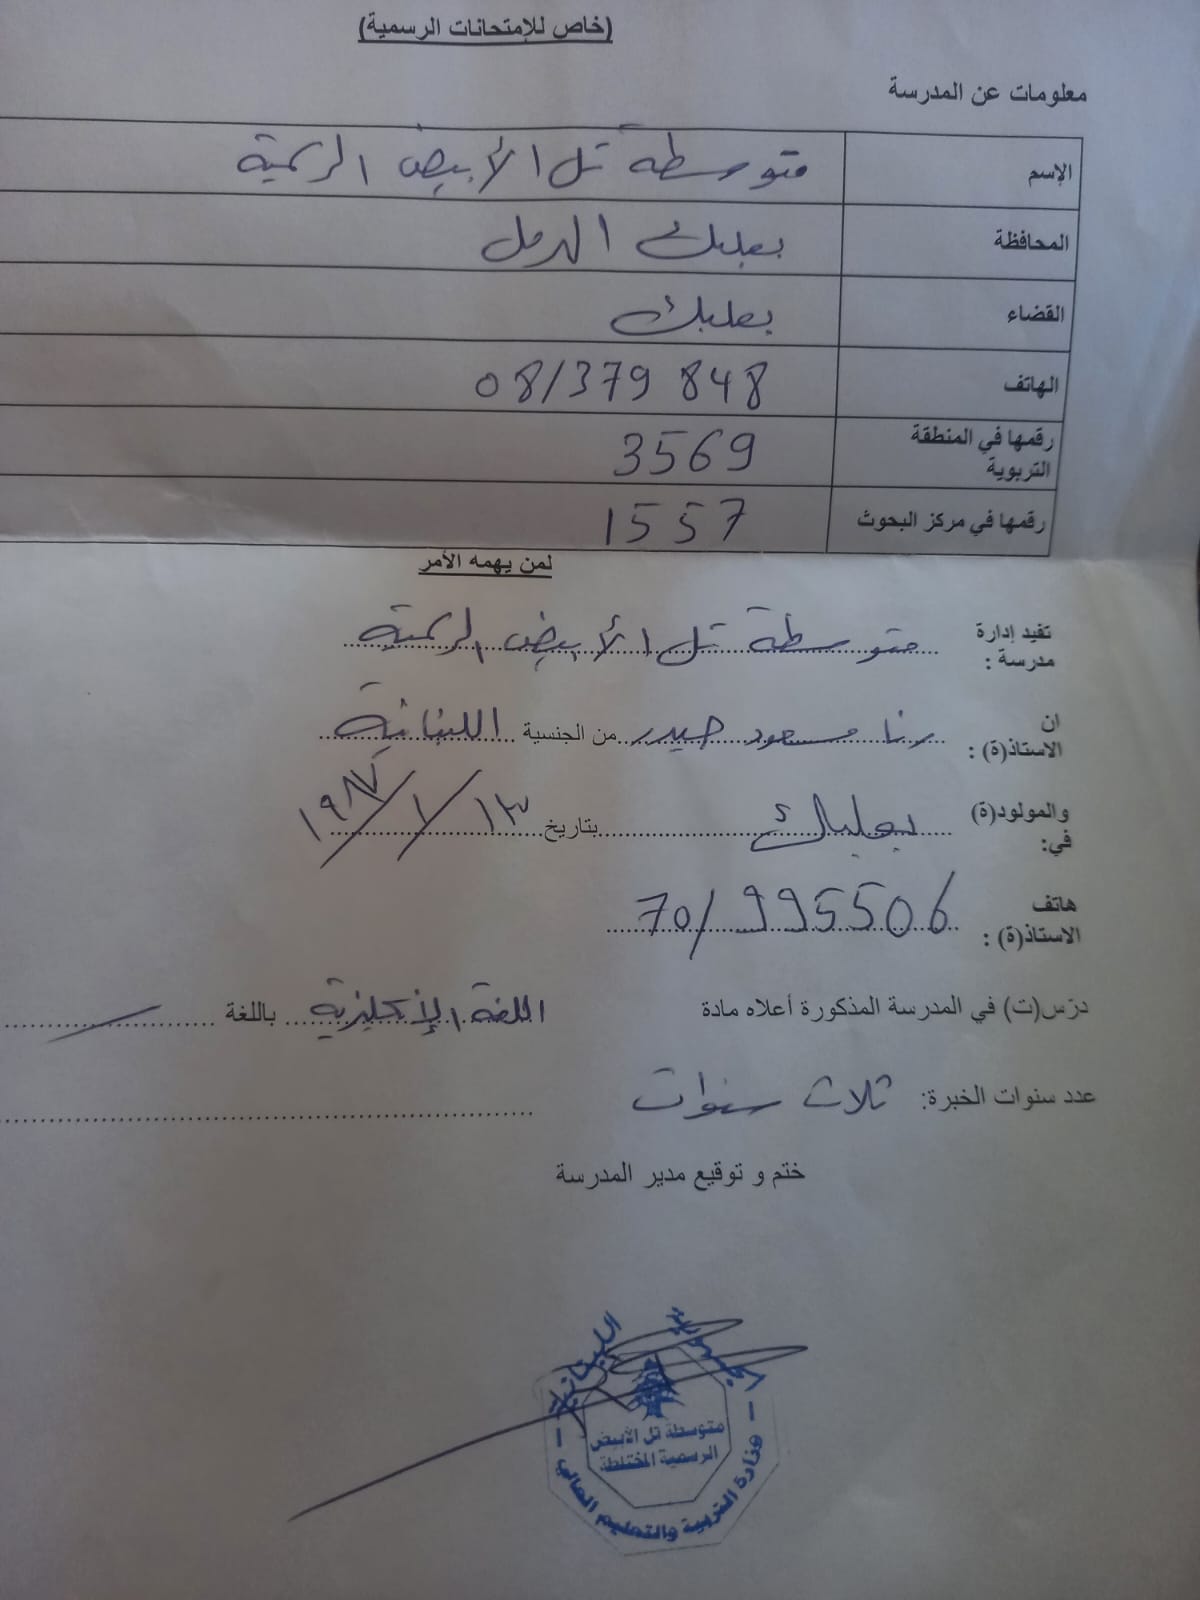 (خاص للإمتحانات الرسمية)
معلومات عن المدرسة
الإسم متوسطة تل الأبيض الرسمية
المحافظة بعلبك الهرمل
القضاء بعلبك
الهاتف 08/379 848
رقمها في المنطقة التربوية 3569
رقمها في مركز البحوث 1557
لمن يهمه الأمر
تفيد إدارة مدرسة : متوسطة تل الأبيض الرسمية
ان الاستاذ(ة) : رنا مسعود حيدر من الجنسية اللبنانية
والمولود(ة) في: بعلبك بتاريخ ١٣/١/١٩٨٧
هاتف الاستاذ(ة) : 70/995506
درّس(ت) في المدرسة المذكورة أعلاه مادة اللغة الإنكليزية باللغة
عدد سنوات الخبرة: ثلاث سنوات
ختم و توقيع مدير المدرسة
الجمهورية اللبنانية
متوسطة تل الأبيض
الرسمية المختلطة
وزارة التربية والتعليم العالي